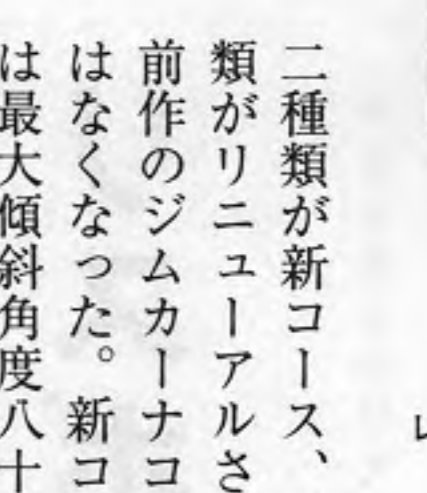 二種類が新コース、
類がリニューアルさ
前作のジムカーナコ
はなくなった。新コ
は最大傾斜角度八十